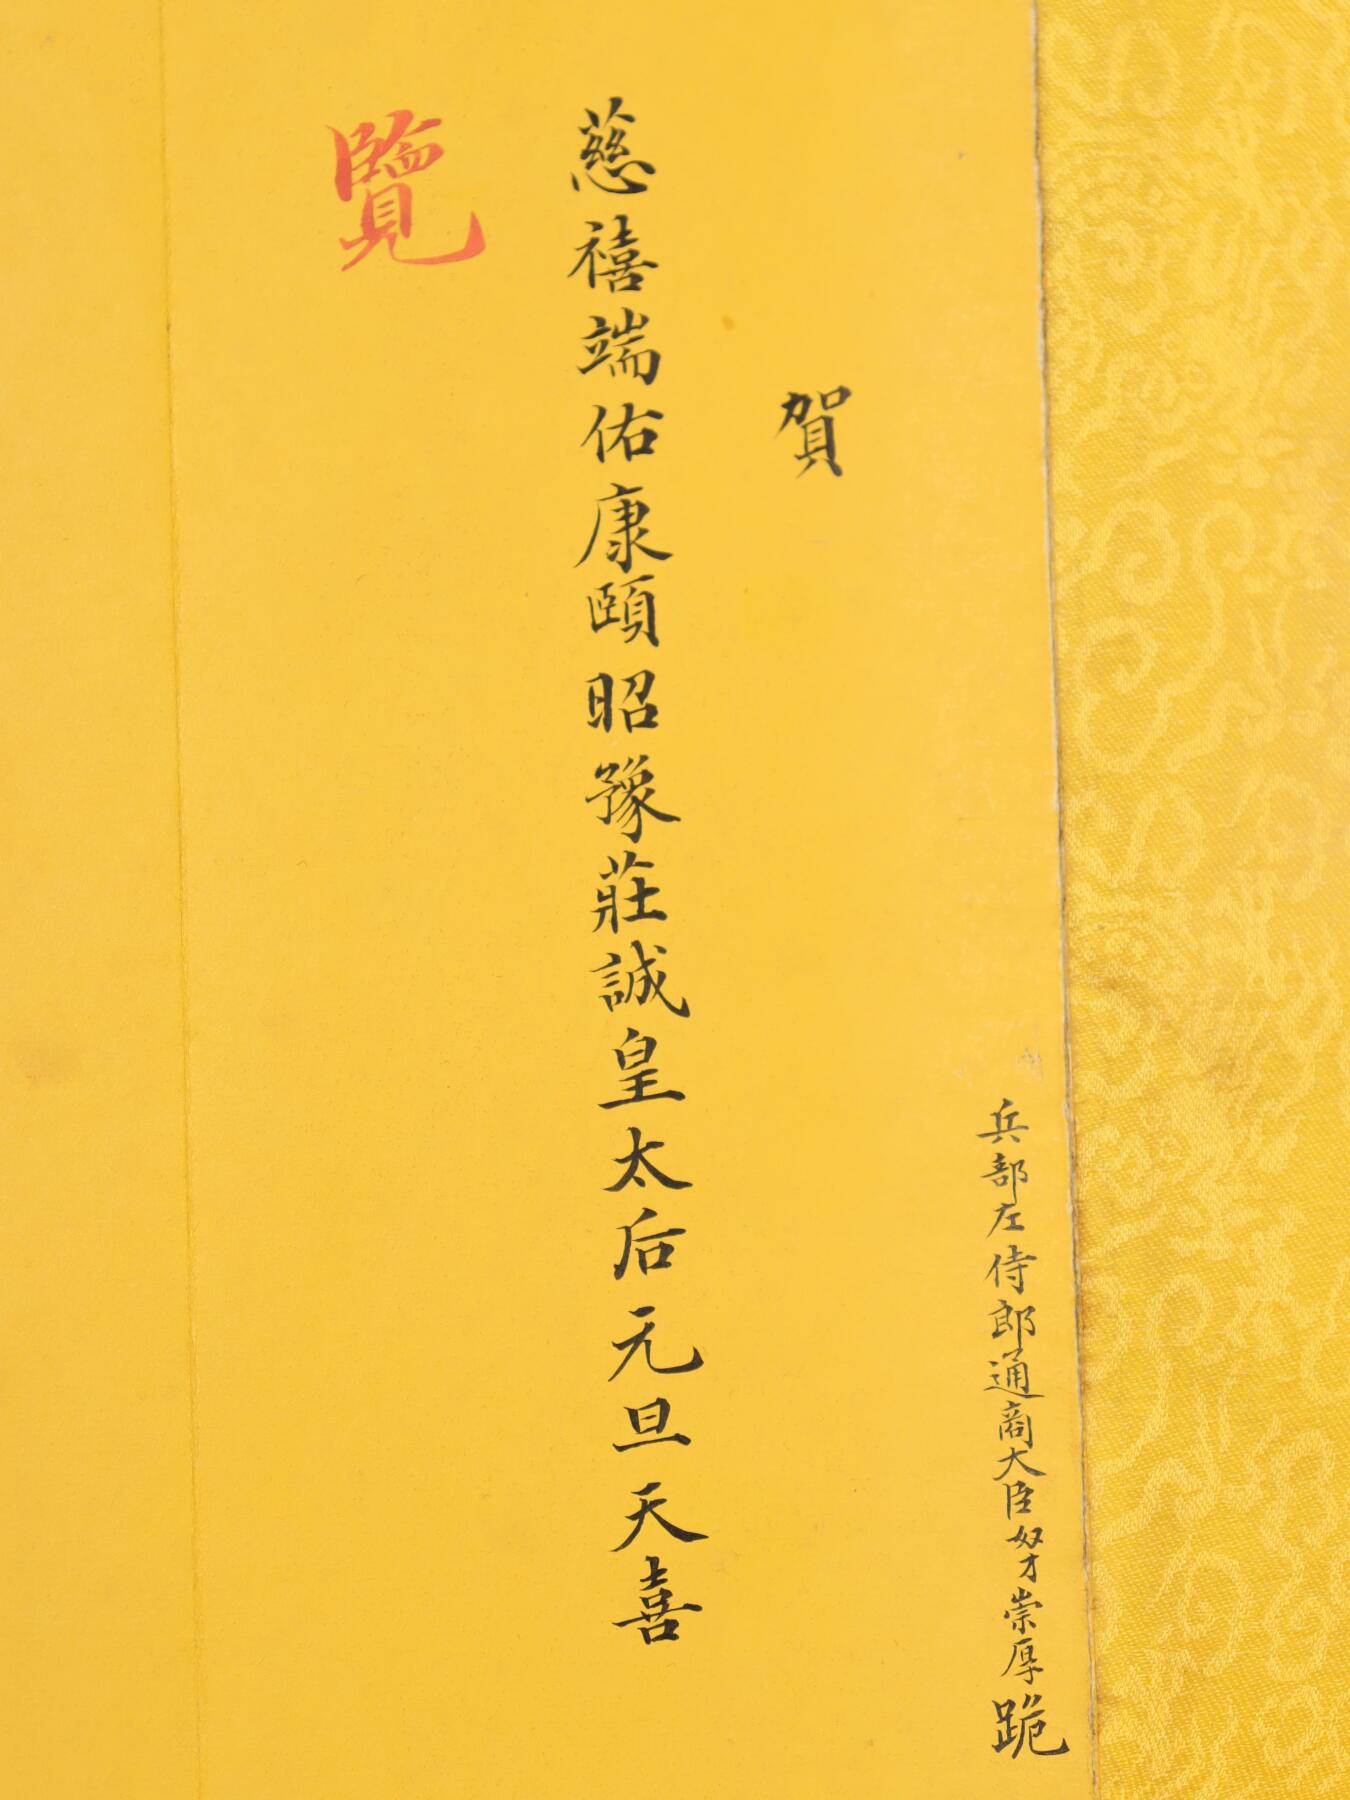 兵部左侍郎通商大臣奴才崇厚跪
賀
慈禧端佑康頤昭豫莊誠皇太后元旦天喜
覽